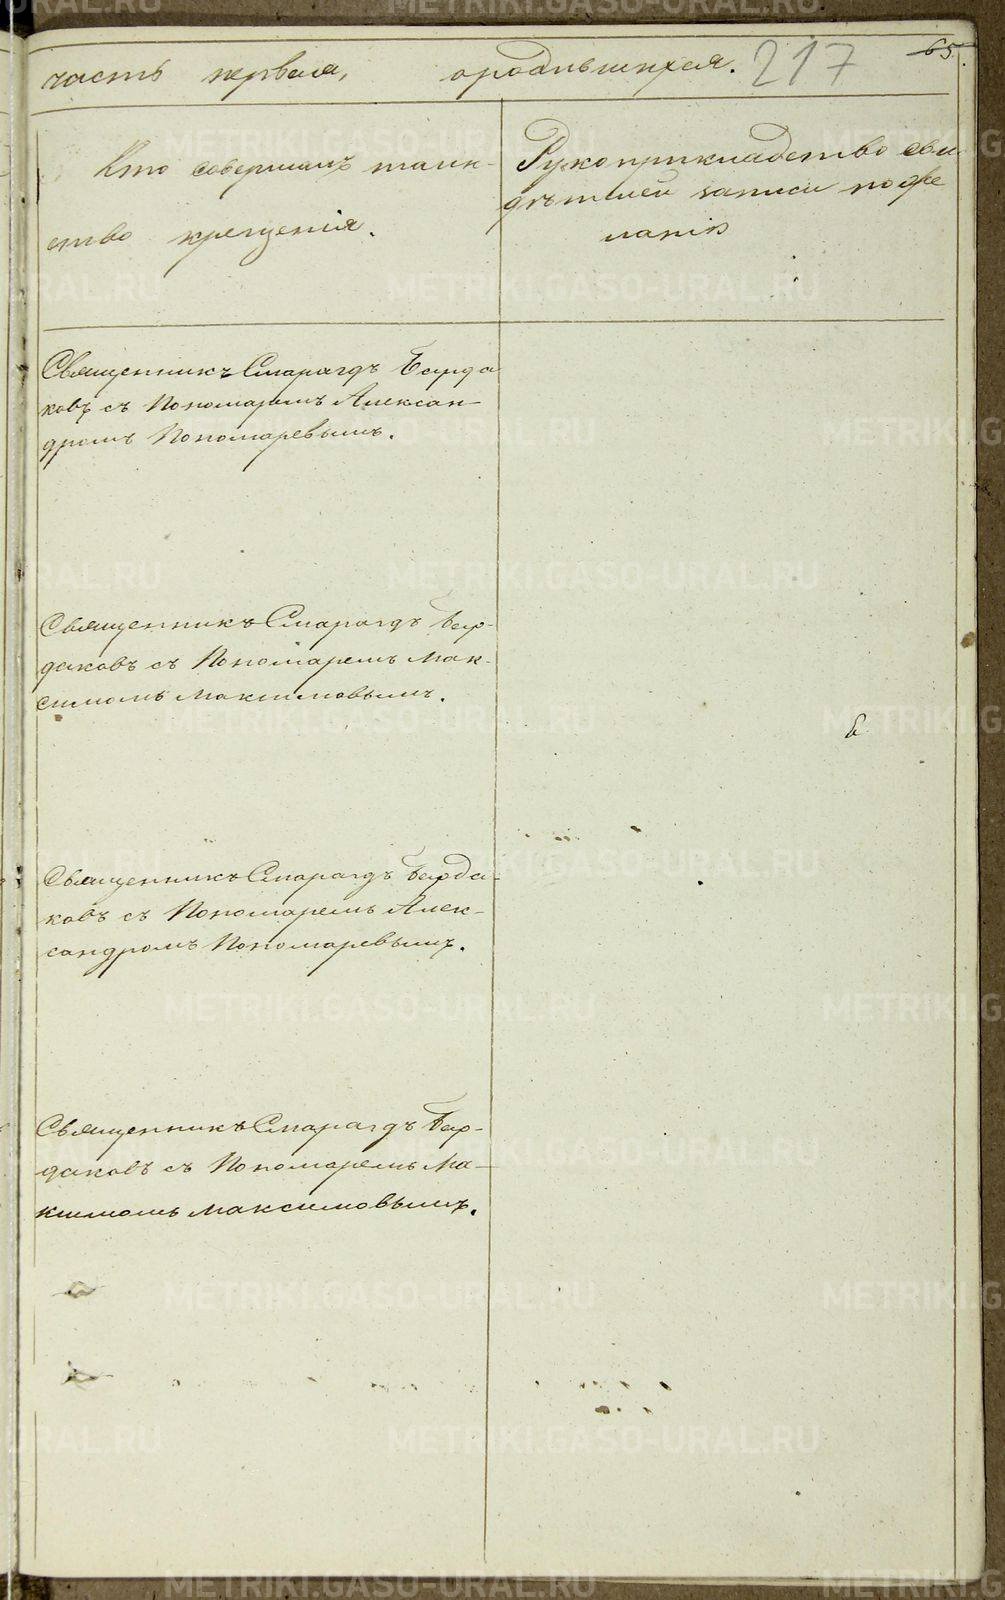 часть первая, ородившихся. 217 65.
Кто совершалъ таин-
ство крещенія.
Рукоприкладство сви
дѣтелей записи по же
ланію
Священникъ Смарагдъ Барда
ковъ съ Пономаремъ Алексан-
дромъ Пономаревымъ.
Священникъ Смарагдъ Бар-
даковъ съ Пономаремъ Мак-
симомъ Максимовымъ.
Священникъ Смарагдъ Барда-
ковъ съ Пономаремъ Алек-
сандромъ Пономаревымъ.
Священникъ Смарагдъ Бар-
даковъ съ Пономаремъ Ма-
ксимомъ Максимовымъ.
METRIKI.GASO-URAL.RU